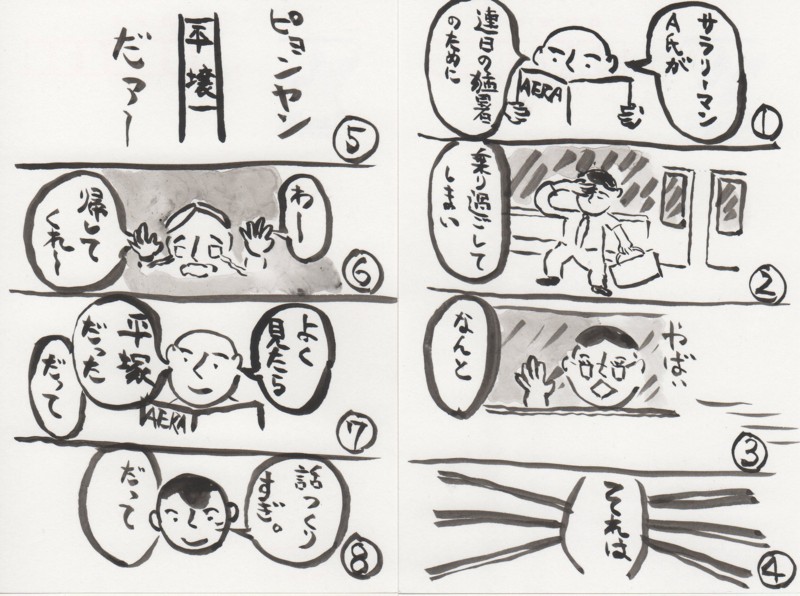 サラリーマン
A氏が
連日の猛暑
のために
AERA
①
乗り過ごして
しまい
②
やばい
なんと
③
それは
④
ピョンヤン
平壌
だァー
⑤
わー
帰して
くれ〜
⑥
よく
見たら
平塚
だった
だって
AERA
⑦
話つくり
すぎ。
だって
⑧